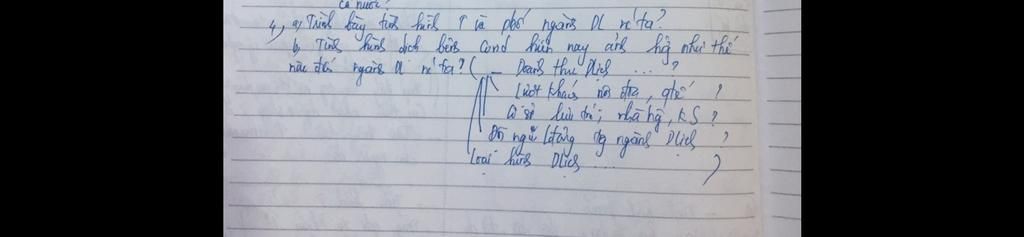 cả nước?
4, a, Trình bày tình hình ↑ và phố ngành DL nc ta?
b, Tình hình dịch bệnh Covid hiện nay ảnh hg như thế
nào đến ngành Dl nc ta? ( _ Doanh thu Dlịch ... ?
Lượt khách nội địa, qtế ?
Cơ sở lưu trú; nhà hg, KS ?
Đội ngũ lđộng tg ngành Dlịch ?
Loại hình Dlịch ... )